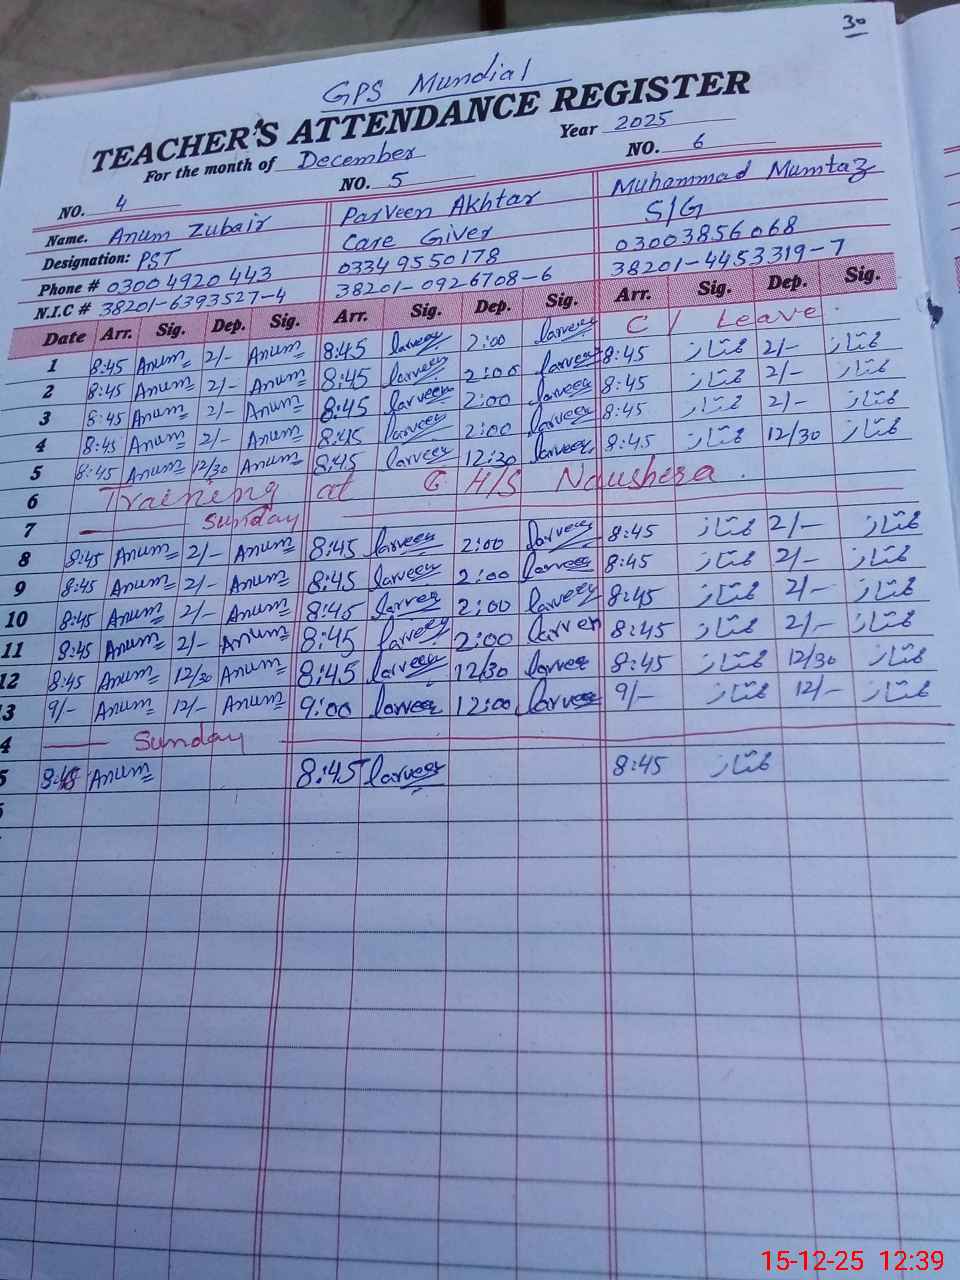 30
GPS Mundial
TEACHER'S ATTENDANCE REGISTER
For the month of December Year 2025
NO. 4 NO. 5 NO. 6
Name. Anum Zubair Parveen Akhtar Muhammad Mumtaz
Designation: PST Care Giver S/G
Phone # 03004920443 03349550178 03003856068
N.I.C # 38201-6393527-4 38201-0926708-6 38201-4453319-7
Date Arr. Sig. Dep. Sig. Arr. Sig. Dep. Sig. Arr. Sig. Dep. Sig.
1 8:45 Anum 2/- Anum 8:45 Parveen 2:00 Parveen C/ Leave
2 8:45 Anum 2/- Anum 8:45 Parveen 2:00 Parveen 8:45 ممتاز 2/- ممتاز
3 8:45 Anum 2/- Anum 8:45 Parveen 2:00 Parveen 8:45 ممتاز 2/- ممتاز
4 8:45 Anum 2/- Anum 8:45 Parveen 2:00 Parveen 8:45 ممتاز 2/- ممتاز
5 8:45 Anum 12/30 Anum 8:45 Parveen 12:30 Parveen 8:45 ممتاز 12/30 ممتاز
6 Training at G H/S Naushera
7 Sunday
8 8:45 Anum 2/- Anum 8:45 Parveen 2:00 Parveen 8:45 ممتاز 2/- ممتاز
9 8:45 Anum 2/- Anum 8:45 Parveen 2:00 Parveen 8:45 ممتاز 2/- ممتاز
10 8:45 Anum 2/- Anum 8:45 Parveen 2:00 Parveen 8:45 ممتاز 2/- ممتاز
11 8:45 Anum 2/- Anum 8:45 Parveen 2:00 Parveen 8:45 ممتاز 2/- ممتاز
12 8:45 Anum 12/30 Anum 8:45 Parveen 12/30 Parveen 8:45 ممتاز 12/30 ممتاز
3 9/- Anum 12/- Anum 9:00 Parveen 12:00 Parveen 9/- ممتاز 12/- ممتاز
4 Sunday
5 8:45 Anum 8:45 Parveen 8:45 ممتاز
15-12-25 12:39